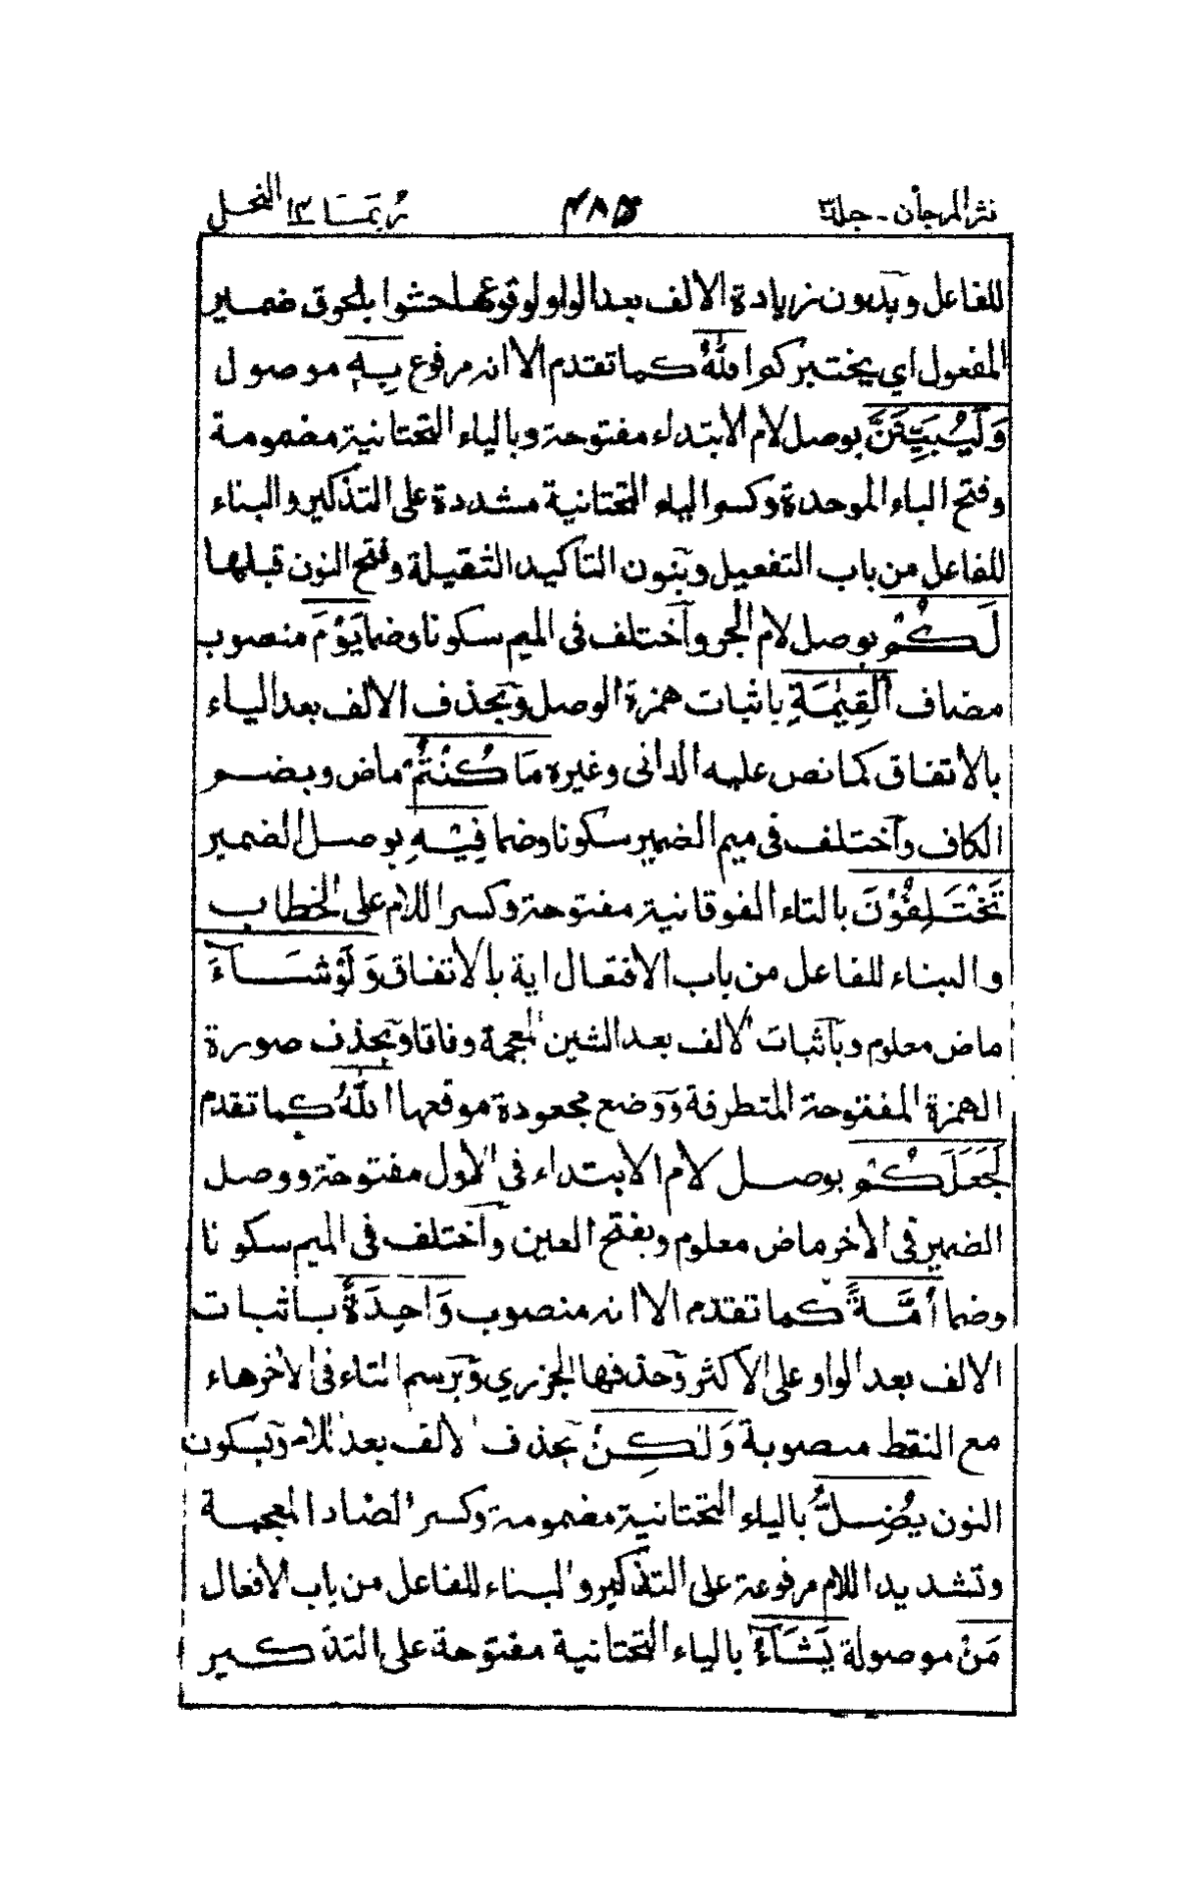 نثر المرجان - جلد ۳ ۴۸۵ ربما ۱۴ النحل
للفاعل وبدون زيادة الالف بعد الواو لوقوعها حشوا بلحوق ضمير
المفعول اي يختبركم الله كما تقدم الا انه مرفوع بِهٖ موصول
وَلَيُبَيِّنَنَّ بوصل لام الابتداء مفتوحة وبالياء التحتانية مضمومة
وفتح الباء الموحدة وكسر الياء التحتانية مشددة على التذكير والبناء
للفاعل من باب التفعيل وبنون التاكيد الثقيلة وفتح النون قبلها
لَكُمْ بوصل لام الجر واختلف فى الميم سكونا وضما يَوْمَ منصوب
مضاف الْقِيٰمَةِ باثبات همزة الوصل وبحذف الالف بعد الياء
بالاتفاق كما نص عليه الدانى وغيره مَا كُنْتُمْ ماض وبضم
الكاف واختلف فى ميم الضمير سكونا وضما فِيْهِ بوصل الضمير
تَخْتَلِفُوْنَ بالتاء الفوقانية مفتوحة وكسر اللام على الخطاب
والبناء للفاعل من باب الافتعال اية بالاتفاق وَلَوْ شَآءَ
ماض معلوم وباثبات الالف بعد الشين المعجمة وفاقا وبحذف صورة
الهمزة المفتوحة المتطرفة ووضع مجعودة موقعها اللّٰهُ كما تقدم
لَجَعَلَكُمْ بوصل لام الابتداء فى الاول مفتوحة ووصل
الضمير فى الاخر ماض معلوم وبفتح العين واختلف فى الميم سكونا
وضما اُمَّةً كما تقدم الا انه منصوب وَاحِدَةً باثبات
الالف بعد الواو على الاكثر وحذفها الجزري وبرسم التاء فى الاخر هاء
مع النقط منصوبة وَلٰكِنْ بحذف الالف بعد اللام وبسكون
النون يُضِلُّ بالياء التحتانية مضمومة وكسر الضاد المعجمة
وتشديد اللام مرفوعة على التذكير والبناء للفاعل من باب الافعال
مَنْ موصولة يَشَآءُ بالياء التحتانية مفتوحة على التذكير